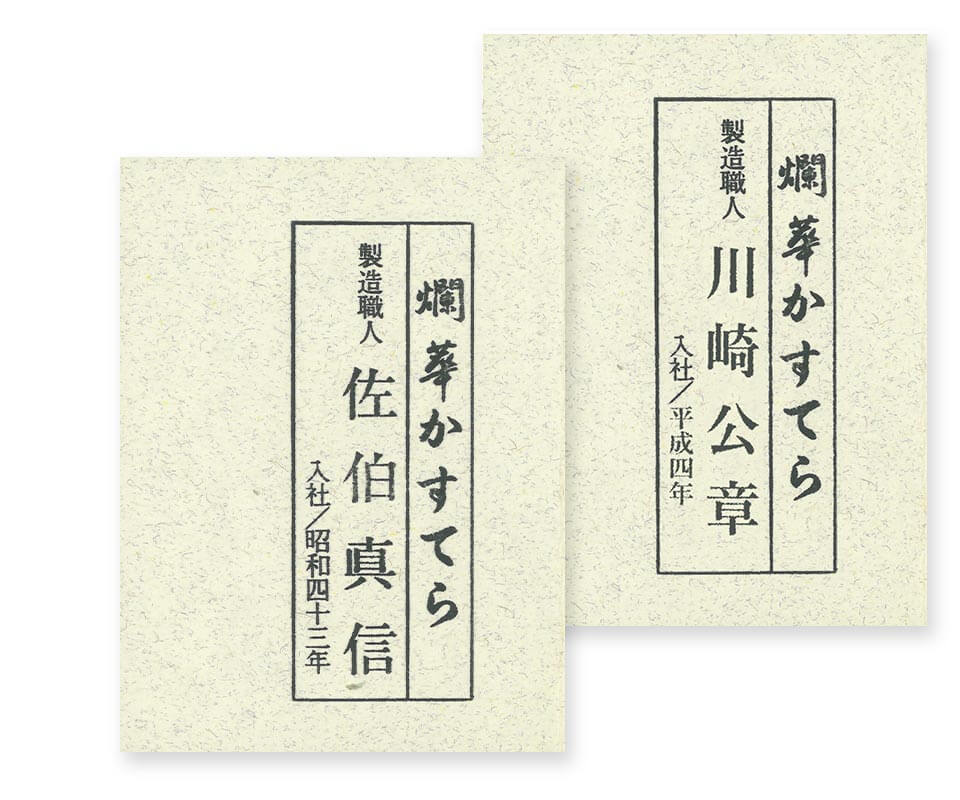 爛華かすてら
製造職人 川崎公章
入社/平成四年
爛華かすてら
製造職人 佐伯真信
入社/昭和四十三年